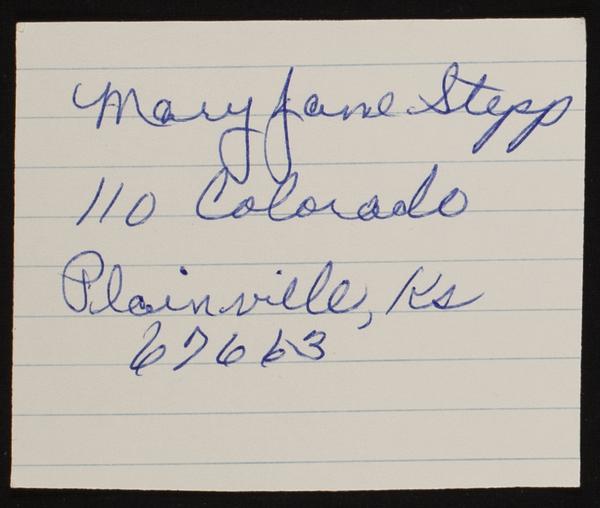 Mary Jane Stepp
110 Colorado
Plainville, Ks
67663